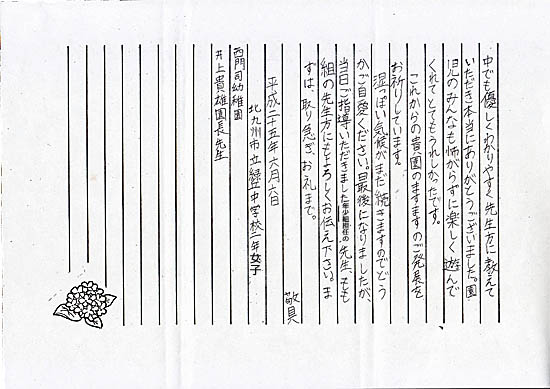 中でも優しくわかりやすく先生方に教えて
いただき本当にありがとうございました。園
児のみんなも怖がらずに楽しく遊んで
くれてとてもうれしかったです。
これからの貴園のますますのご発展を
お祈りしています。
湿っぽい気候がまだ続きますのでどう
かご自愛ください。最後になりましたが、
当日ご指導いただきました年少組担任の先生、もも
組の先生方にもよろしくお伝え下さい。ま
ずは、取り急ぎ、お礼まで。
敬具
平成二十五年六月六日
北九州市立緑丘中学校二年女子
西門司幼稚園
井上貴雄園長先生